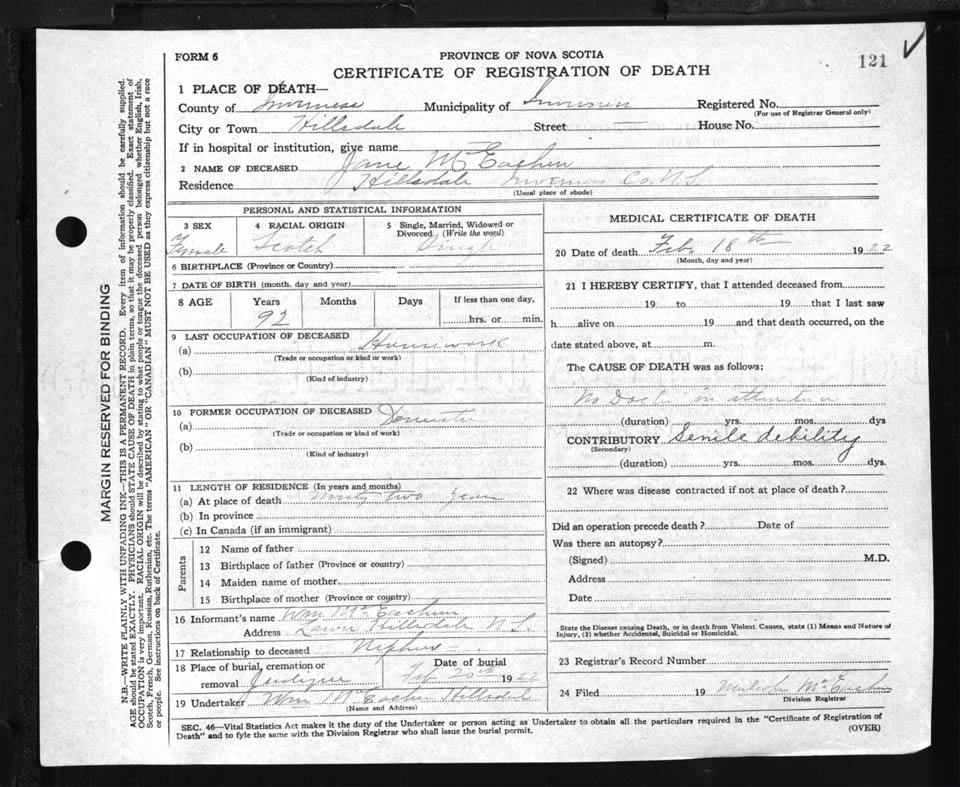 FORM 6
PROVINCE OF NOVA SCOTIA
CERTIFICATE OF REGISTRATION OF DEATH
121
1 PLACE OF DEATH—
County of Inverness Municipality of Inverness Registered No.
(For use of Registrar General only)
City or Town Hillsdale Street — House No.
If in hospital or institution, give name
2 NAME OF DECEASED Jane McEachen
Residence Hillsdale Inverness Co. N.S.
(Usual place of abode)
PERSONAL AND STATISTICAL INFORMATION
3 SEX 4 RACIAL ORIGIN 5 Single, Married, Widowed or
Divorced (Write the word)
Female Scotch Single
6 BIRTHPLACE (Province or Country)
7 DATE OF BIRTH (month, day and year)
8 AGE Years Months Days If less than one day,
92 hrs. or min.
9 LAST OCCUPATION OF DECEASED Housework
(a)
(Trade or occupation or kind or work)
(b)
(Kind of industry)
10 FORMER OCCUPATION OF DECEASED Domestic
(a)
(Trade or occupation or kind of work)
(b)
(Kind of industry)
11 LENGTH OF RESIDENCE (In years and months)
(a) At place of death ninty two years
(b) In province
(c) In Canada (if an immigrant)
Parents
12 Name of father
13 Birthplace of father (Province or country)
14 Maiden name of mother
15 Birthplace of mother (Province or country)
16 Informant's name Wm McEachen
Address Lower Hillsdale N.S.
17 Relationship to deceased Nephew —
18 Place of burial, cremation or Date of burial
removal Judique Feb 20th 1922
19 Undertaker Wm McEachen Hillsdale
(Name and Address)
MEDICAL CERTIFICATE OF DEATH
20 Date of death Feb. 18th 1922
(Month, day and year)
21 I HEREBY CERTIFY, that I attended deceased from
19 to 19 that I last saw
h alive on 19 and that death occurred, on the
date stated above, at m.
The CAUSE OF DEATH was as follows:
No Doctor in attendance
(duration) yrs. mos. dys
CONTRIBUTORY Senile debility
(Secondary)
(duration) yrs. mos. dys.
22 Where was disease contracted if not at place of death?
Did an operation precede death? Date of
Was there an autopsy?
(Signed) M.D.
Address
Date
State the Disease causing Death, or in death from Violent Causes, state (1) Means and Nature of
Injury, (2) whether Accidental, Suicidal or Homicidal.
23 Registrar's Record Number
24 Filed 19 McEachen
Division Registrar
SEC. 46—Vital Statistics Act makes it the duty of the Undertaker or person acting as Undertaker to obtain all the particulars required in the "Certificate of Registration of
Death" and to fyle the same with the Division Registrar who shall issue the burial permit.
(OVER)
MARGIN RESERVED FOR BINDING
N.B.—WRITE PLAINLY WITH UNFADING INK—THIS IS A PERMANENT RECORD. Every item of information should be carefully supplied.
AGE should be stated EXACTLY. PHYSICIANS should STATE CAUSE OF DEATH in plain terms, so that it may be properly classified. Exact statement of
OCCUPATION is very important. RACIAL ORIGIN will be described by stating to what people or tongue the deceased person belonged whether English, Irish,
Scotch, French, German, Russian, Ruthenian, etc. The terms "AMERICAN" OR "CANADIAN" MUST NOT BE USED as they express citizenship but not a race
or people. See instructions on back of Certificate.